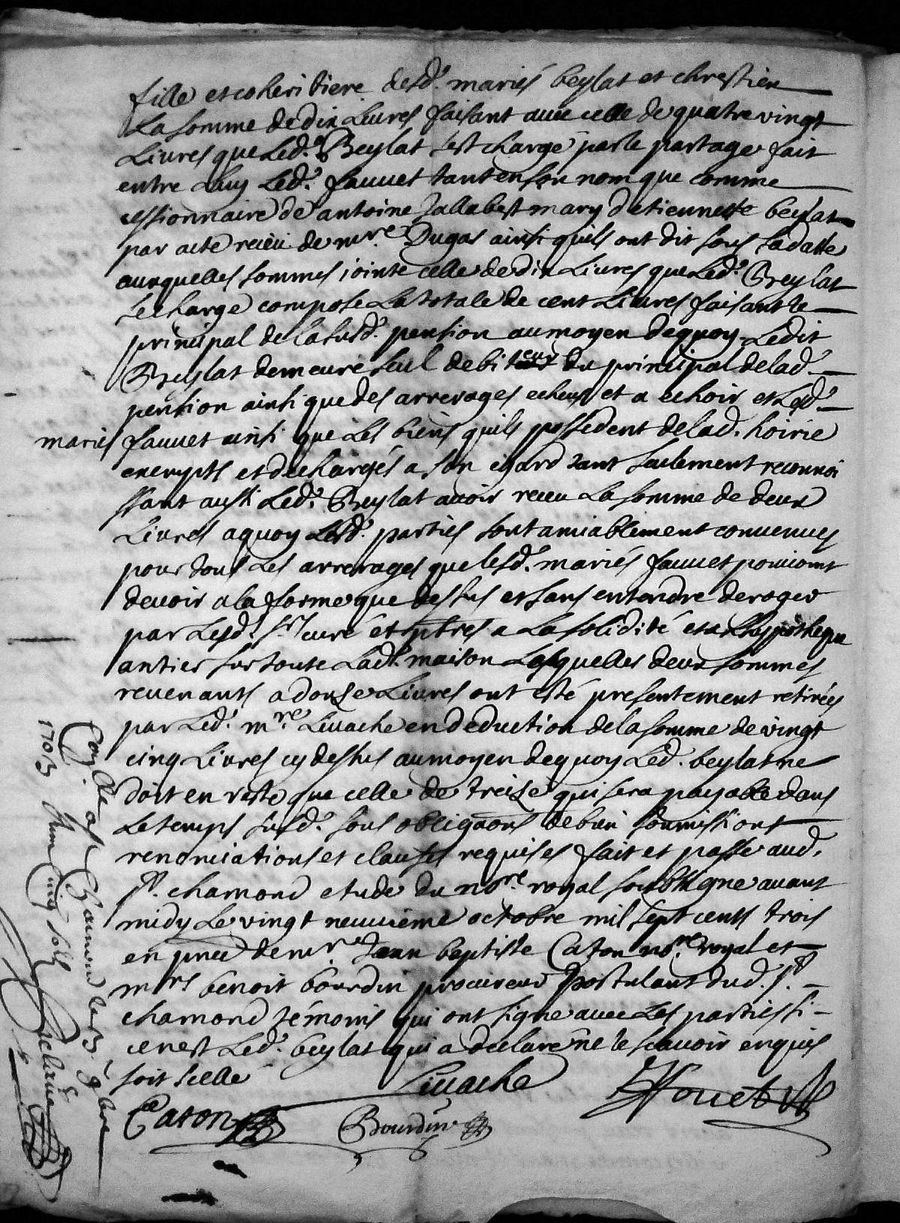 fille et coheritiere desd. mariés beylat et chrestien
La somme de dix Livres faisant avec celle de quatre vingt
Livres que Led. Beylat s'est chargé par le partage fait
entre Luy Led. fauvet tant en son nom que comme
cessionnaire de antoine Jallabest mary d'etiennette beylat
par acte receu de mre Dugas ainsi quils ont dit sous sa datte
auxquelles sommes jointe celle de dix Livres que Led. Beylat
se charge compose La totale de cent Livres faisant le
principal de la susd. pention au moyen dequoy Ledit
Beylat demeure seul debiteur du principal de lad.
pention ainsi que des arrerages echeus et a echoir et Led.
mariés fauvet ainsi que Les biens quils possedent de lad. hoirie
exempts et dechargés a son egard tant seulement reconnoi
ssant aussi Led. Beylat avoir receu La somme de deux
Livres a quoy Lesd. parties sont amiablement convenues
pour tous Les arrerages que lesd. mariés fauvet pouvoient
devoir a la forme que dessus et sans entendre deroger
par Lesd. sr curé et pbres a La solidité et a Lhypotheque
antier sur toute Lad. maison Lesquelles deux sommes
revenants a douze Livres ont esté presentement retirées
par Led. mre Livache en deduction de la somme de vingt
cinq Livres cy dessus au moyen dequoy Led. beylat ne
doit en reste que celle de treize qui sera payable dans
Le temps susd. sous obligaons de biens soumissions
renonciations et clauses requises fait et passé aud.
st. chamond etude du nore royal soubsigne avant
midy Le vingt neuvieme octobre mil sept cents trois
en pnce de mre Jean baptiste Caton nore royal et
mrs benoit bourdin procureur postulant dud. st.
chamond temoins qui ont signe avec Les parties si
ce nest Led. beylat qui a declaré ne le scavoir enquis
soit scellé
Livache
fouet
Caton
Bourdin
Con̄lé a St Chamond le 3e 9bre
1703 cinq sols